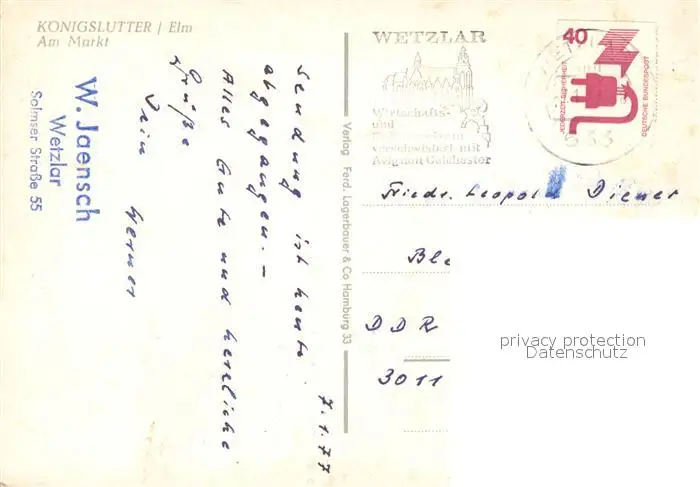 KÖNIGSLUTTER / Elm
Am Markt
W. Jaensch
Wetzlar
Solmser Straße 55
7.1.77
Sendung ist heute
abgegangen. –
Alles Gute und herzliche
Grüße
Dein
Werner
Verlag Ferd. Lagerbauer & Co Hamburg 33
WETZLAR
Wirtschafts-
und
verschwistert mit
Avignon Colchester
40
JEDERZEIT SICHERHEIT
DEUTSCHE BUNDESPOST
633
Friedr. Leopold Diener
Ble
DDR
3011
privacy protection
Datenschutz